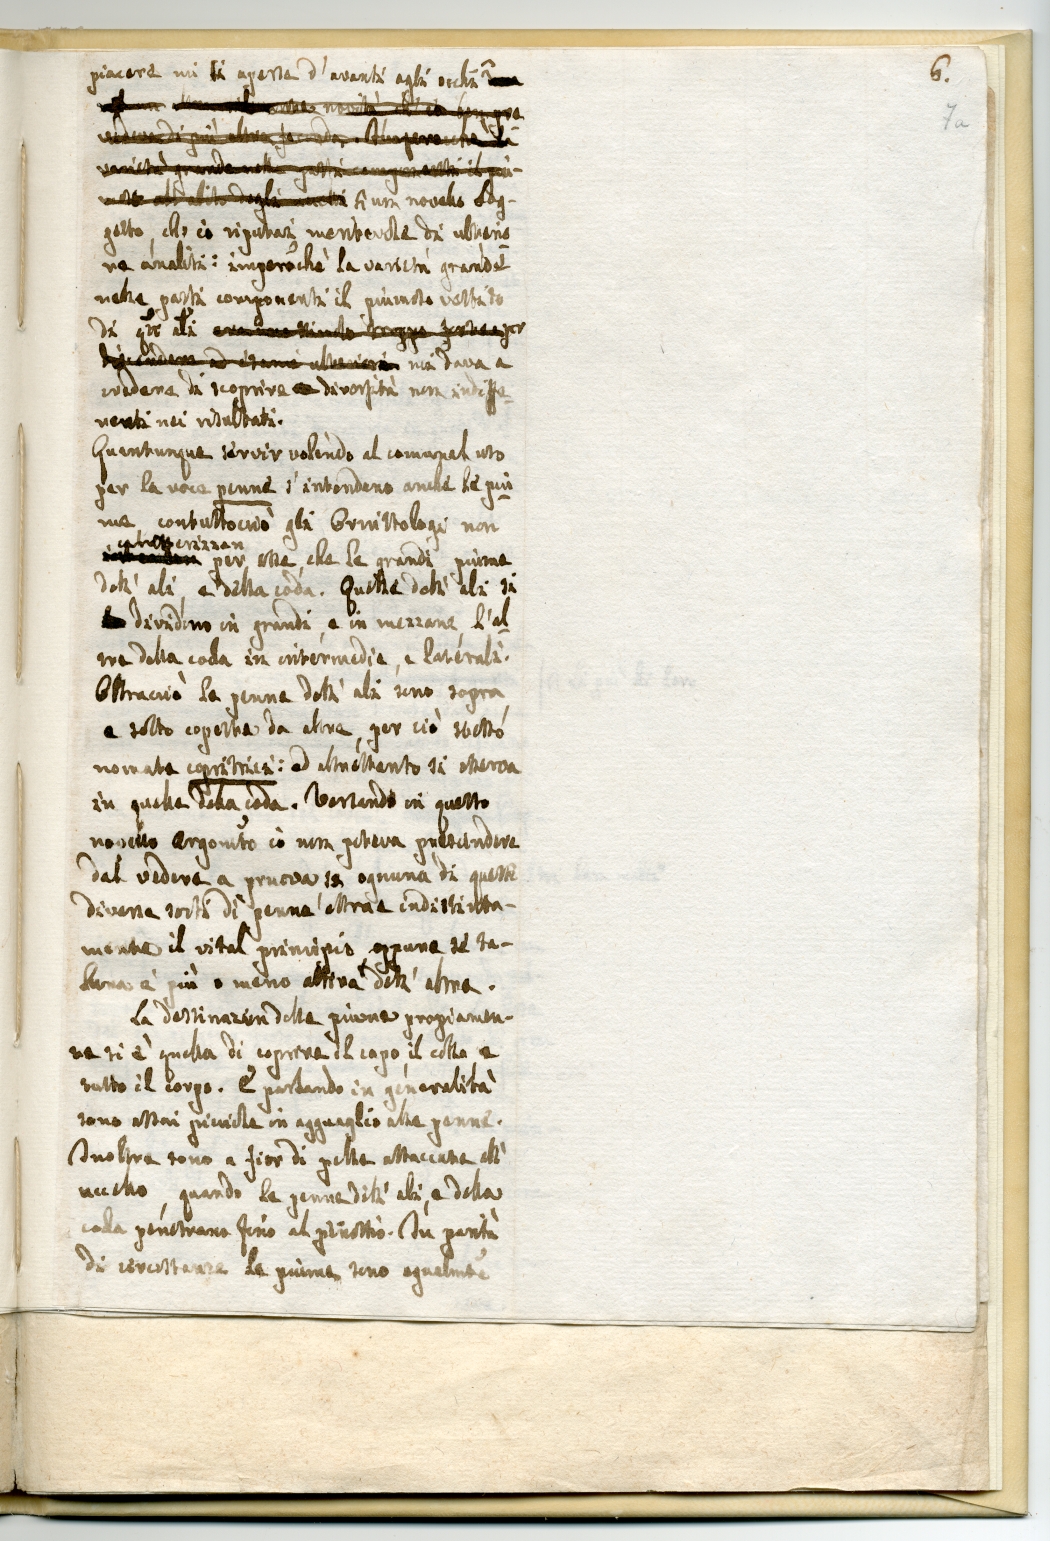 6.
7a
piacere mi si aperse d'avanti agli occhi
vedere di più altre feconda. Imperocchè la
varietà grande nelle parti componenti il piu-
moso abito degli uccelli si un novello sog-
getto, ch'io riputai meritevole di ulterio
re analisi: imperochè la varietà grande
nelle parti componenti il piumoso vestito
di gli ali
mi dava a
credere di scoprire diversità non indiffe
renti nei risultati.
Quantunque servir volendo al comunal uso
per la voce penne s'intendono anche le piu
me, contuttociò gli Ornitologi non
caratterizzan
per esse, che le grandi piume
dell'ali, e della coda. Quelle dell'ali si
dividono in grandi, e in mezzane, l'al
tre della coda in intermedie, e laterali.
Oltracciò le penne dell'ali sono sopra,
e sotto coperte da altre, per ciò stesso
nomate copritrici: ed altrettanto si osserva
in quelle della coda. Versando in questo
novello argomto io non poteva prescindere
dal vedere a pruova se ognuna di queste
diverse sorti di penne estrae indistinta-
mente il vital principio, oppure se ta-
luna è più o meno attiva dell'altre.
La destinazion delle piume propiamen-
te si è quella di coprire il capo, il collo e
tutto il corpo. E parlando in generalità
sono assai picciole in agguaglio alle penne.
Inoltre sono a fior di pelle attaccate all'
uccello, quando le penne dell'ali, e della
coda penetrano fino al periostio. In parità
di circostanze le piume sono egualmte